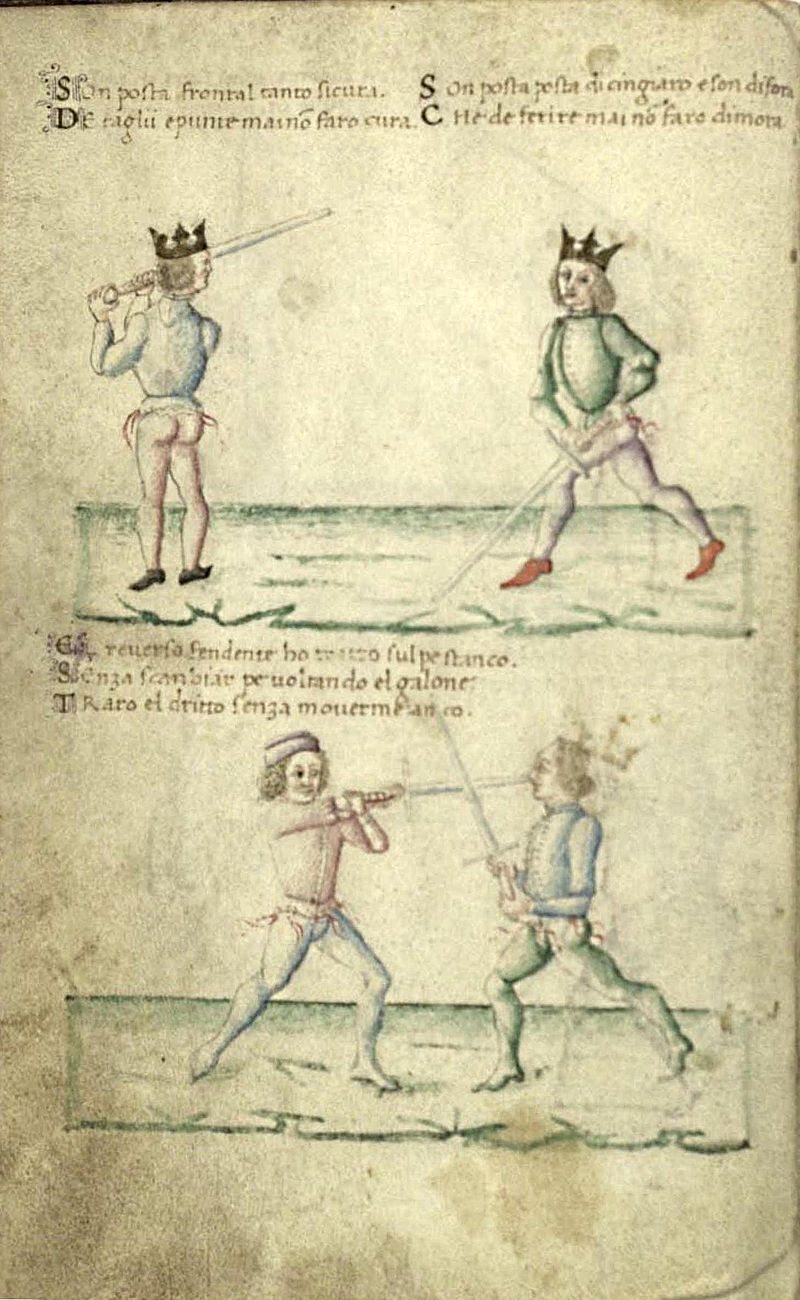 SOn posta frontal tanto sicura.
DE taglii e punte mai nō faro cura.
SOn posta posta di cingiaro e son di fora
CHe de ferire mai nō faro dimora
EL reverso fendente ho tratto sul pe stanco.
SEnza scambiar pe voltando el galone
TRaro el dritto senza moverme anco.